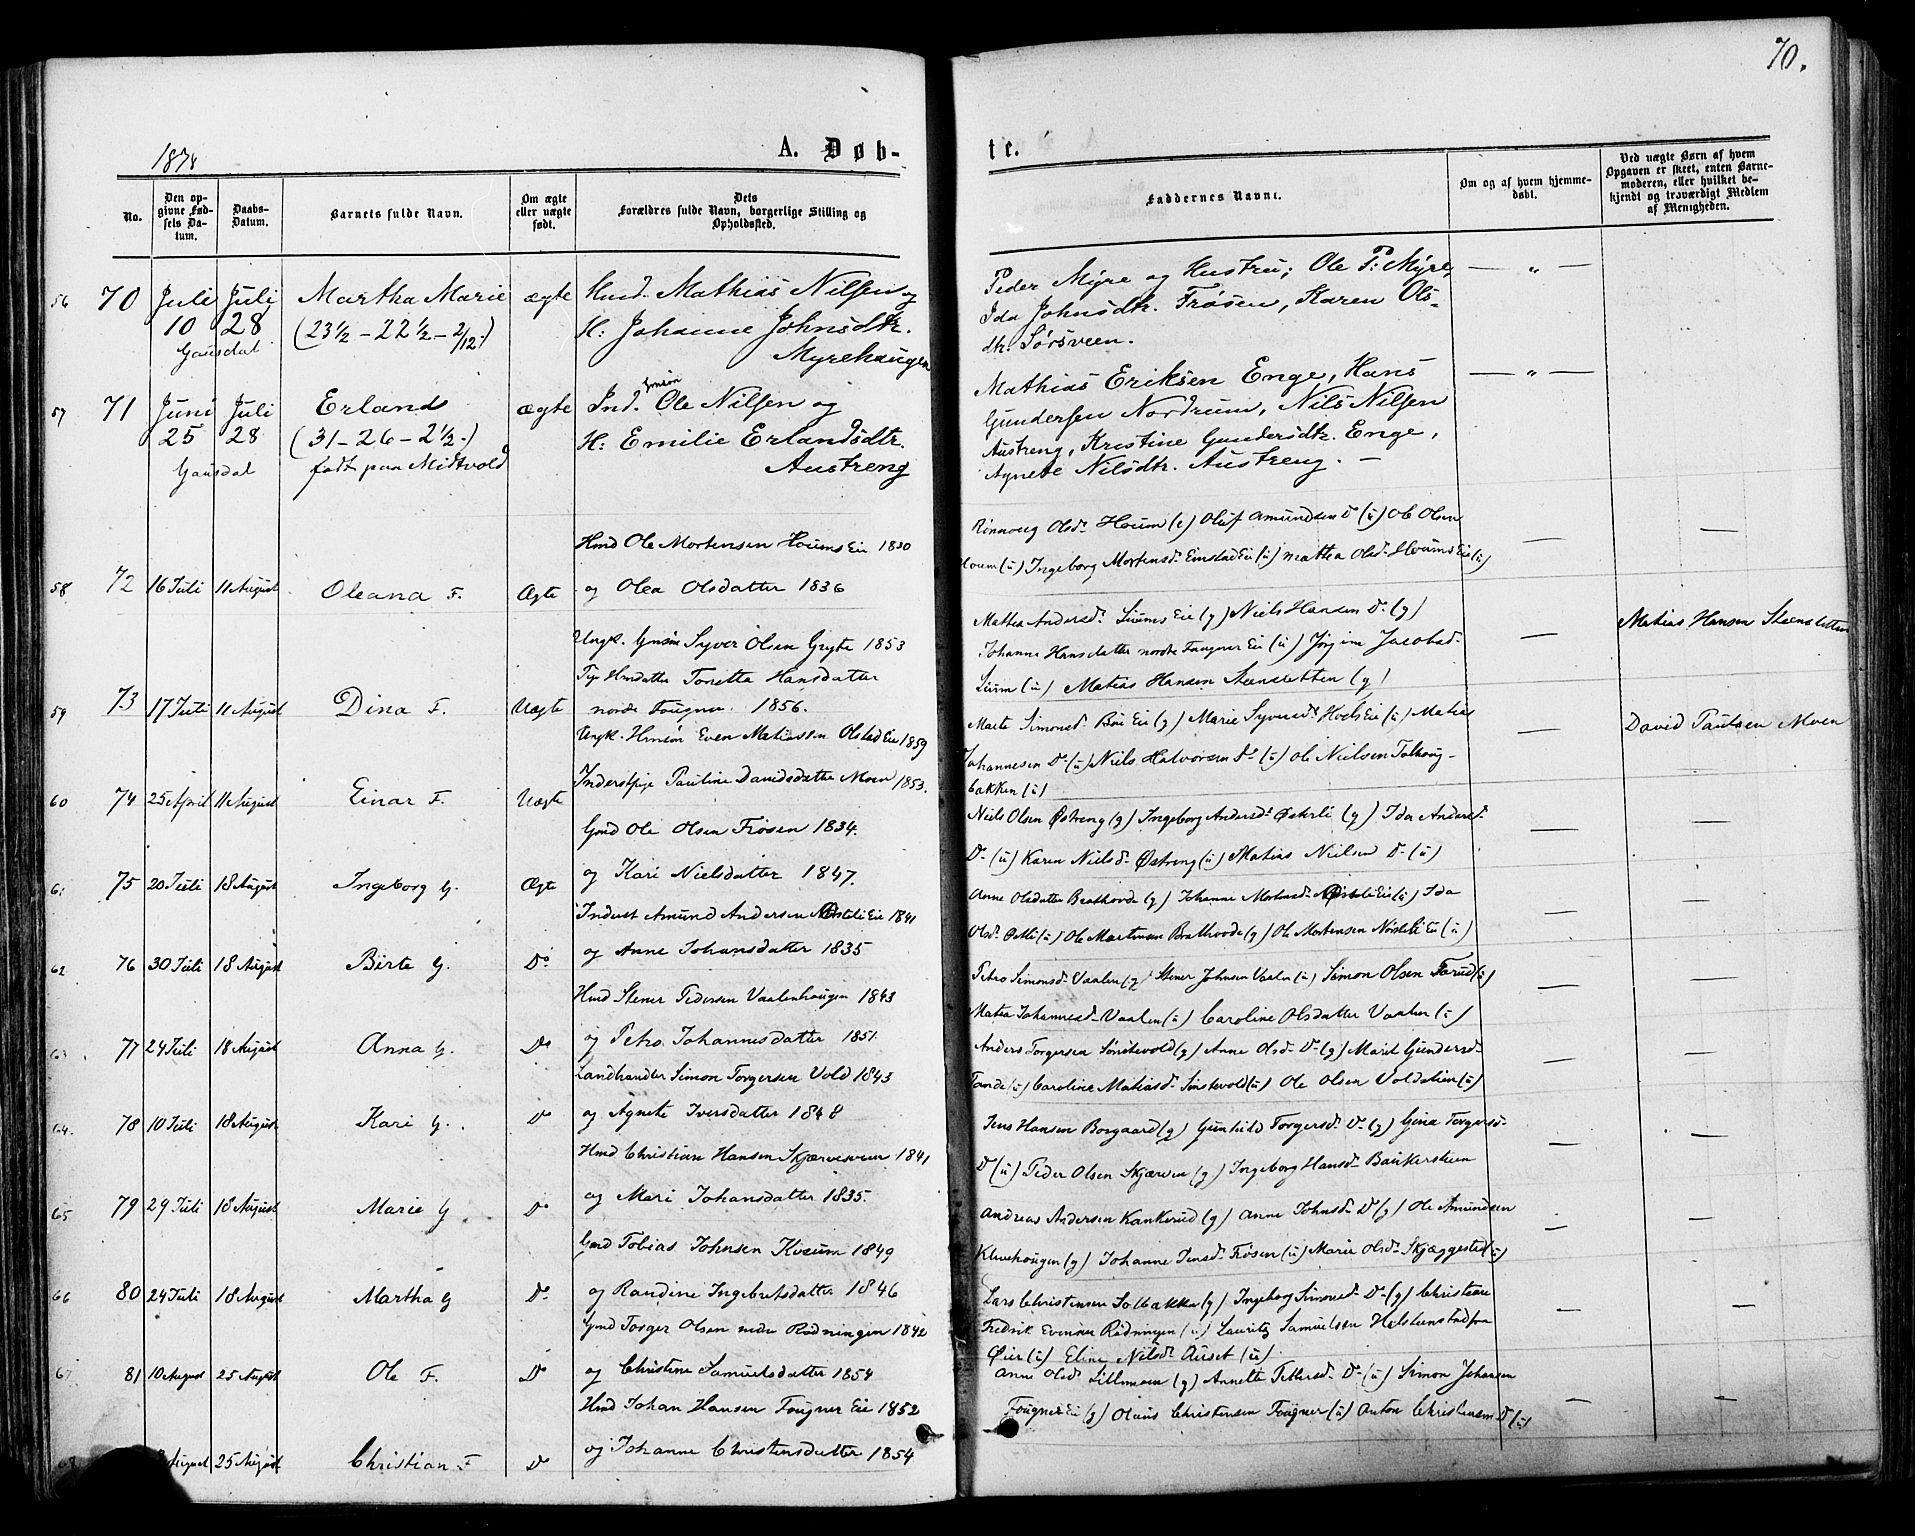 70.
1878
A. Døb-
te.
No.
Den opgivne Fødsels Datum.
Daabs-Datum.
Barnets fulde Navn.
Om ægte eller uægte født.
Dets Forældres fulde Navn, borgerlige Stilling og Opholdssted.
Faddernes Navne.
Om og af hvem hjemmedøbt.
Ved uægte Børn af hvem Opgaven er skeet, enten Barnemoderen, eller hvilket bekjendt og troværdigt Medlem af Menigheden.
56 70 Juli 10 Gausdal Juli 28 Martha Marie (23½ - 22½ - 2/12.) ægte
Hmd. Mathias Nilsen og
H: Johanne Johnsdtr.
Myrehaugen
Peder Myre og Hustru; Ole P: Myre,
Ida Johnsdtr. Frøsen, Karen Ols-
dtr. Sørsveen.
— „ —
57 71 Juni 25 Gausdal Juli 28 Erland (31 - 26 - 2½.) født paa Midtvold ægte
Ind. Gmsøn Ole Nilsen og
H: Emilie Erlandsdtr.
Austreng
Mathias Eriksen Enge, Hans
Gundersen Nordrum, Nils Nilsen
Austreng, Kristine Gundersdtr. Enge,
Agnete Nilsdtr. Austreng. —
— „ —
58 72 16 Juli 11 August Oleana F. Ægte
Hmd Ole Mortensen Houms Eie 1830
og Olea Olsdatter 1836
Rønnaug Olsdr Houm (e) Oluf Amundsen Do (u) Ole Olsen
Houm (u) Ingeborg Mortensdr Einstad Eie (u) Mathea Olsdr Houms Eie (u)
—
—
59 73 17 Juli 11 August Dina F. Uægte
Ungk. Gmsøn Syver Olsen Gryte 1853
Pige Hmdatter Tonetta Hansdatter
nordre Fougner. 1856.
Mathea Andersdr Liums Eie (g) Niels Hansen Do (g)
Johanne Hansdatter nordre Fougner Eie (u) Jørgine Jacobsd-
Lium (u) Matias Hansen Steensletten (g)
—
Matias Hansen Steensletten
60 74 25 April 11 August Einar F. Uægte
Ungk. Hmsøn Even Matiassen Olstad Eie 1859
Inderst Pige Pauline Davidsdatter Moen 1853.
Marte Simonsd- Bøe Eie (g) Marie Syversd- Hoels Eie (u) Matias
Johannesen Do (u) Niels Halvorsen Do (u) Ole Nielsen Tolhaug-
bakken (u)
—
David Paulsen Moen
61 75 20 Juli 18 August Ingeborg G. Ægte
Gmd Ole Olsen Frøsen 1834.
og Kari Nielsdatter 1847.
Niels Olsen Østreng (g) Ingeborg Andersd- Østerli (g) Ida Andersd-
Do (u) Karen Nielsd- Østreng (u) Matias Nielsen Do (u)
—
—
62 76 30 Juli 18 August Birte G. Do
Inderst Amund Andersen Østeli Eie 1841
og Anne Johansdatter 1835
Anne Olsdatter Brathovde (g) Johanne Mortensd- Østeli Eie (u) Ida
Olsd- Østli (u) Ole Martinsen Brathovde (g) Ole Mortensen Nørsteli Eie (u)
—
—
63 77 24 Juli 18 August Anna G. Do
Hmd Stener Pedersen Vaalenhaugen 1843
og Petro Johannesdatter 1851.
Petro Simonsd- Vaalen (g) Stener Johnsen Vaalen (u) Simon Olsen Forud (u)
Matea Johannesd- Vaalen (u) Caroline Olsdatter Vaalen (u)
—
—
64. 78 10 Juli 18 August Kari G. Do
Landhandler Simon Torgersen Vold 1843
og Agnete Iversdatter 1848
Anders Torgersen Sønstevold (g) Anne Olsd- Do (g) Marit Gundersd-
Tande (u) Caroline Matiasd- Sønstevold (u) Ole Olsen Voldstien (u)
—
—
65 79 29 Juli 18 August Marie G Do
Hmd Christian Hansen Skjærvesveen 1841
og Mari Johansdatter 1835.
Jens Hansen Borgaard (g) Gunhild Torgersd- Do (g) Gina Torgersd-
Do (u) Peder Olsen Skjærven (g) Ingeborg Hansd- Baukersteien
—
—
66 80 24 Juli 18 August Martha G Do
Gmd Tobias Johnsen Kveum 1849
og Randine Ingebretsdatter 1846
Andreas Andersen Kankerud (g) Anne Johnsd- Do (g) Ole Amundsen
Klevehougen (g) Johanne Jensd- Frøsen (u) Marie Olsd- Skjæggestad (u)
—
—
67 81 10 August 25 August Ole F. Do
Gmd Torger Olsen nedre Rødningen 1842
og Christine Samuelsdatter 1854
Lars Christensen Solbakken (g) Ingeborg Simonsd- Do (g) Christian
Fredrik Evensen Rødningen (u) Lauritz Samuelsen Helstenstad fra
Øier (u) Eline Nilsd- Aurset (u)
—
—
68 August 25 August Christian F Do
Hmd Johan Hansen Fougner Eie 1852
og Johanne Christensdatter 1854
Anne Olsd- Lillemoen (g) Annette Pettersd- Do (u) Simon Johansen
Fougner Eie (g) Olaus Christensen Fougner (u) Anton Christensen Do (u)
—
—